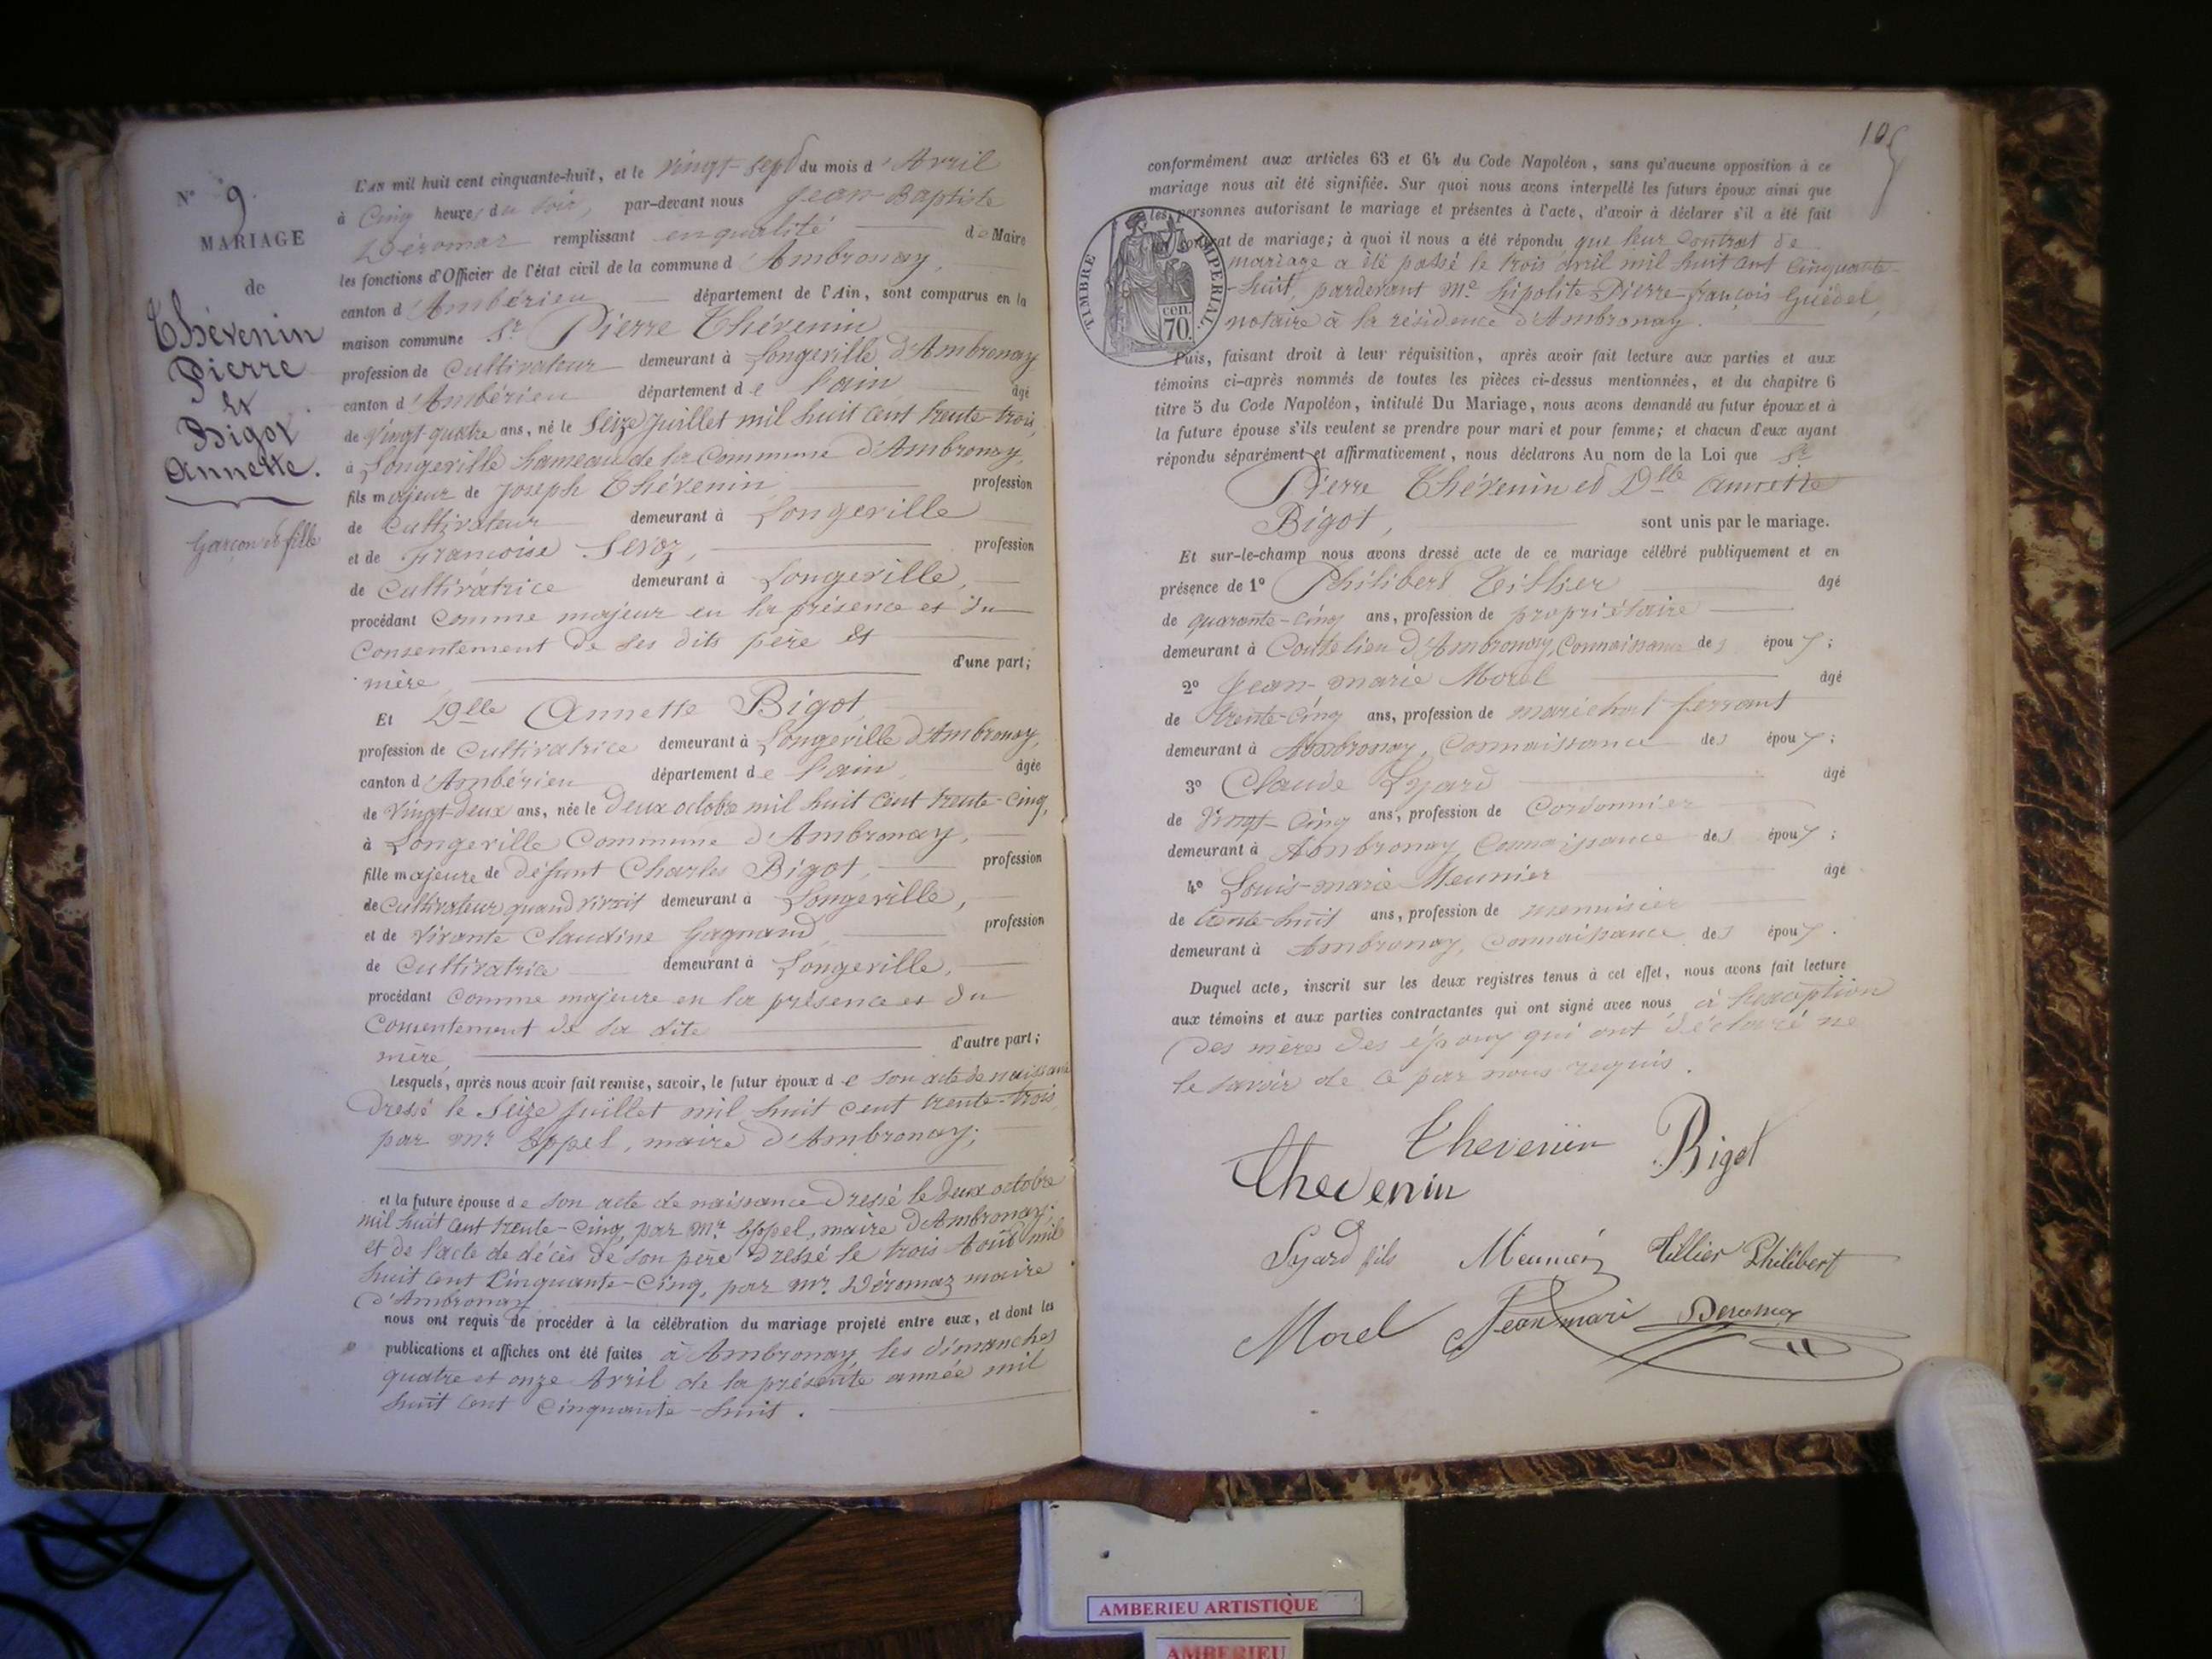 N° 9.
MARIAGE
de
Thévenin
Pierre
et
Bigot
Annette.
Garçon et fille
L'AN mil huit cent cinquante-huit, et le vingt-sept du mois d'Avril
à Cinq heures du soir, par-devant nous Jean-Baptiste
Déromaz remplissant en qualité de Maire
les fonctions d'Officier de l'état civil de la commune d'Ambronay,
canton d'Ambérieu département de l'Ain, sont comparus en la
maison commune Sr Pierre Thévenin
profession de Cultivateur demeurant à Longeville d'Ambronay
canton d'Ambérieu département de l'ain âgé
de Vingt-quatre ans, né le Seize Juillet mil huit cent trente-trois,
à Longeville hameau de la Commune d'Ambronay,
fils majeur de Joseph Thévenin profession
de Cultivateur demeurant à Longeville
et de Francoise Sevoz, profession
de Cultivatrice demeurant à Longeville,
procédant Comme majeur en la présence et du
Consentement de ses dits père et
mère d'une part;
Et Dlle Annette Bigot
profession de Cultivatrice demeurant à Longeville d'Ambronay,
canton d'Ambérieu département de l'ain, âgée
de Vingt-deux ans, née le Deux octobre mil huit cent trente-cinq,
à Longeville Commune d'Ambronay,
fille majeure de défunt Charles Bigot, profession
de Cultivateur quand vivait demeurant à Longeville,
et de vivante Claudine Gagnaud profession
de Cultivatrice demeurant à Longeville,
procédant Comme majeure en la présence et du
Consentement de sa dite
mère d'autre part;
Lesquels, après nous avoir fait remise, savoir, le futur époux de son acte de naissance
Dressé le Seize Juillet mil huit cent trente-trois
par Mr Eppel, maire d'Ambronay;
et la future épouse de son acte de naissance Dressé le Deux octobre
mil huit cent trente-cinq, par Mr Eppel, maire d'Ambronay;
et de l'acte de décès de son père Dressé le trois Août mil
huit cent Cinquante-Cinq, par Mr Déromaz maire
d'Ambronay
nous ont requis de procéder à la célébration du mariage projeté entre eux, et dont les
publications et affiches ont été faites à Ambronay les dimanches
quatre et onze Avril de la présente année mil
huit cent Cinquante-huit.
105
conformément aux articles 63 et 64 du Code Napoléon, sans qu'aucune opposition à ce
mariage nous ait été signifiée. Sur quoi nous avons interpellé les futurs époux ainsi que
les personnes autorisant le mariage et présentes à l'acte, d'avoir à déclarer s'il a été fait
contrat de mariage; à quoi il nous a été répondu que leur Contrat de
mariage a été passé le trois avril mil huit cent Cinquante-
-huit, pardevant Me hipolite Pierre-françois Guédel,
notaire à la résidence d'Ambronay.
TIMBRE IMPERIAL.
CEN. 70.
Puis, faisant droit à leur réquisition, après avoir fait lecture aux parties et aux
témoins ci-après nommés de toutes les pièces ci-dessus mentionnées, et du chapitre 6
titre 5 du Code Napoléon, intitulé Du Mariage, nous avons demandé au futur époux et à
la future épouse s'ils veulent se prendre pour mari et pour femme; et chacun d'eux ayant
répondu séparément et affirmativement, nous déclarons Au nom de la Loi que Sr
Pierre Thévenin et Dlle Annette
Bigot, sont unis par le mariage.
Et sur-le-champ nous avons dressé acte de ce mariage célébré publiquement et en
présence de 1° Philibert Tillier âgé
de quarante-cinq ans, profession de propriétaire
demeurant à Coutelieu d'Ambronay, Connaissance des époux;
2° Jean-marie Morel âgé
de trente-cinq ans, profession de maréchal ferrant
demeurant à Ambronay, Connaissance des époux;
3° Claude Lyard âgé
de Vingt-Cinq ans, profession de Cordonnier
demeurant à Ambronay, Connaissance des époux;
4° Louis-marie Meunier âgé
de trente-huit ans, profession de menuisier
demeurant à Ambronay, Connaissance des époux.
Duquel acte, inscrit sur les deux registres tenus à cet effet, nous avons fait lecture
aux témoins et aux parties contractantes qui ont signé avec nous à l'exception
Des mères des époux qui ont déclaré ne
le savoir de ce par nous requis.
Thevenin Bigot
Thevenin
Lyard fils Meunier Tillier Philibert
Morel Jean marie Deromaz
AMBERIEU ARTISTIQUE
AMBERIEU